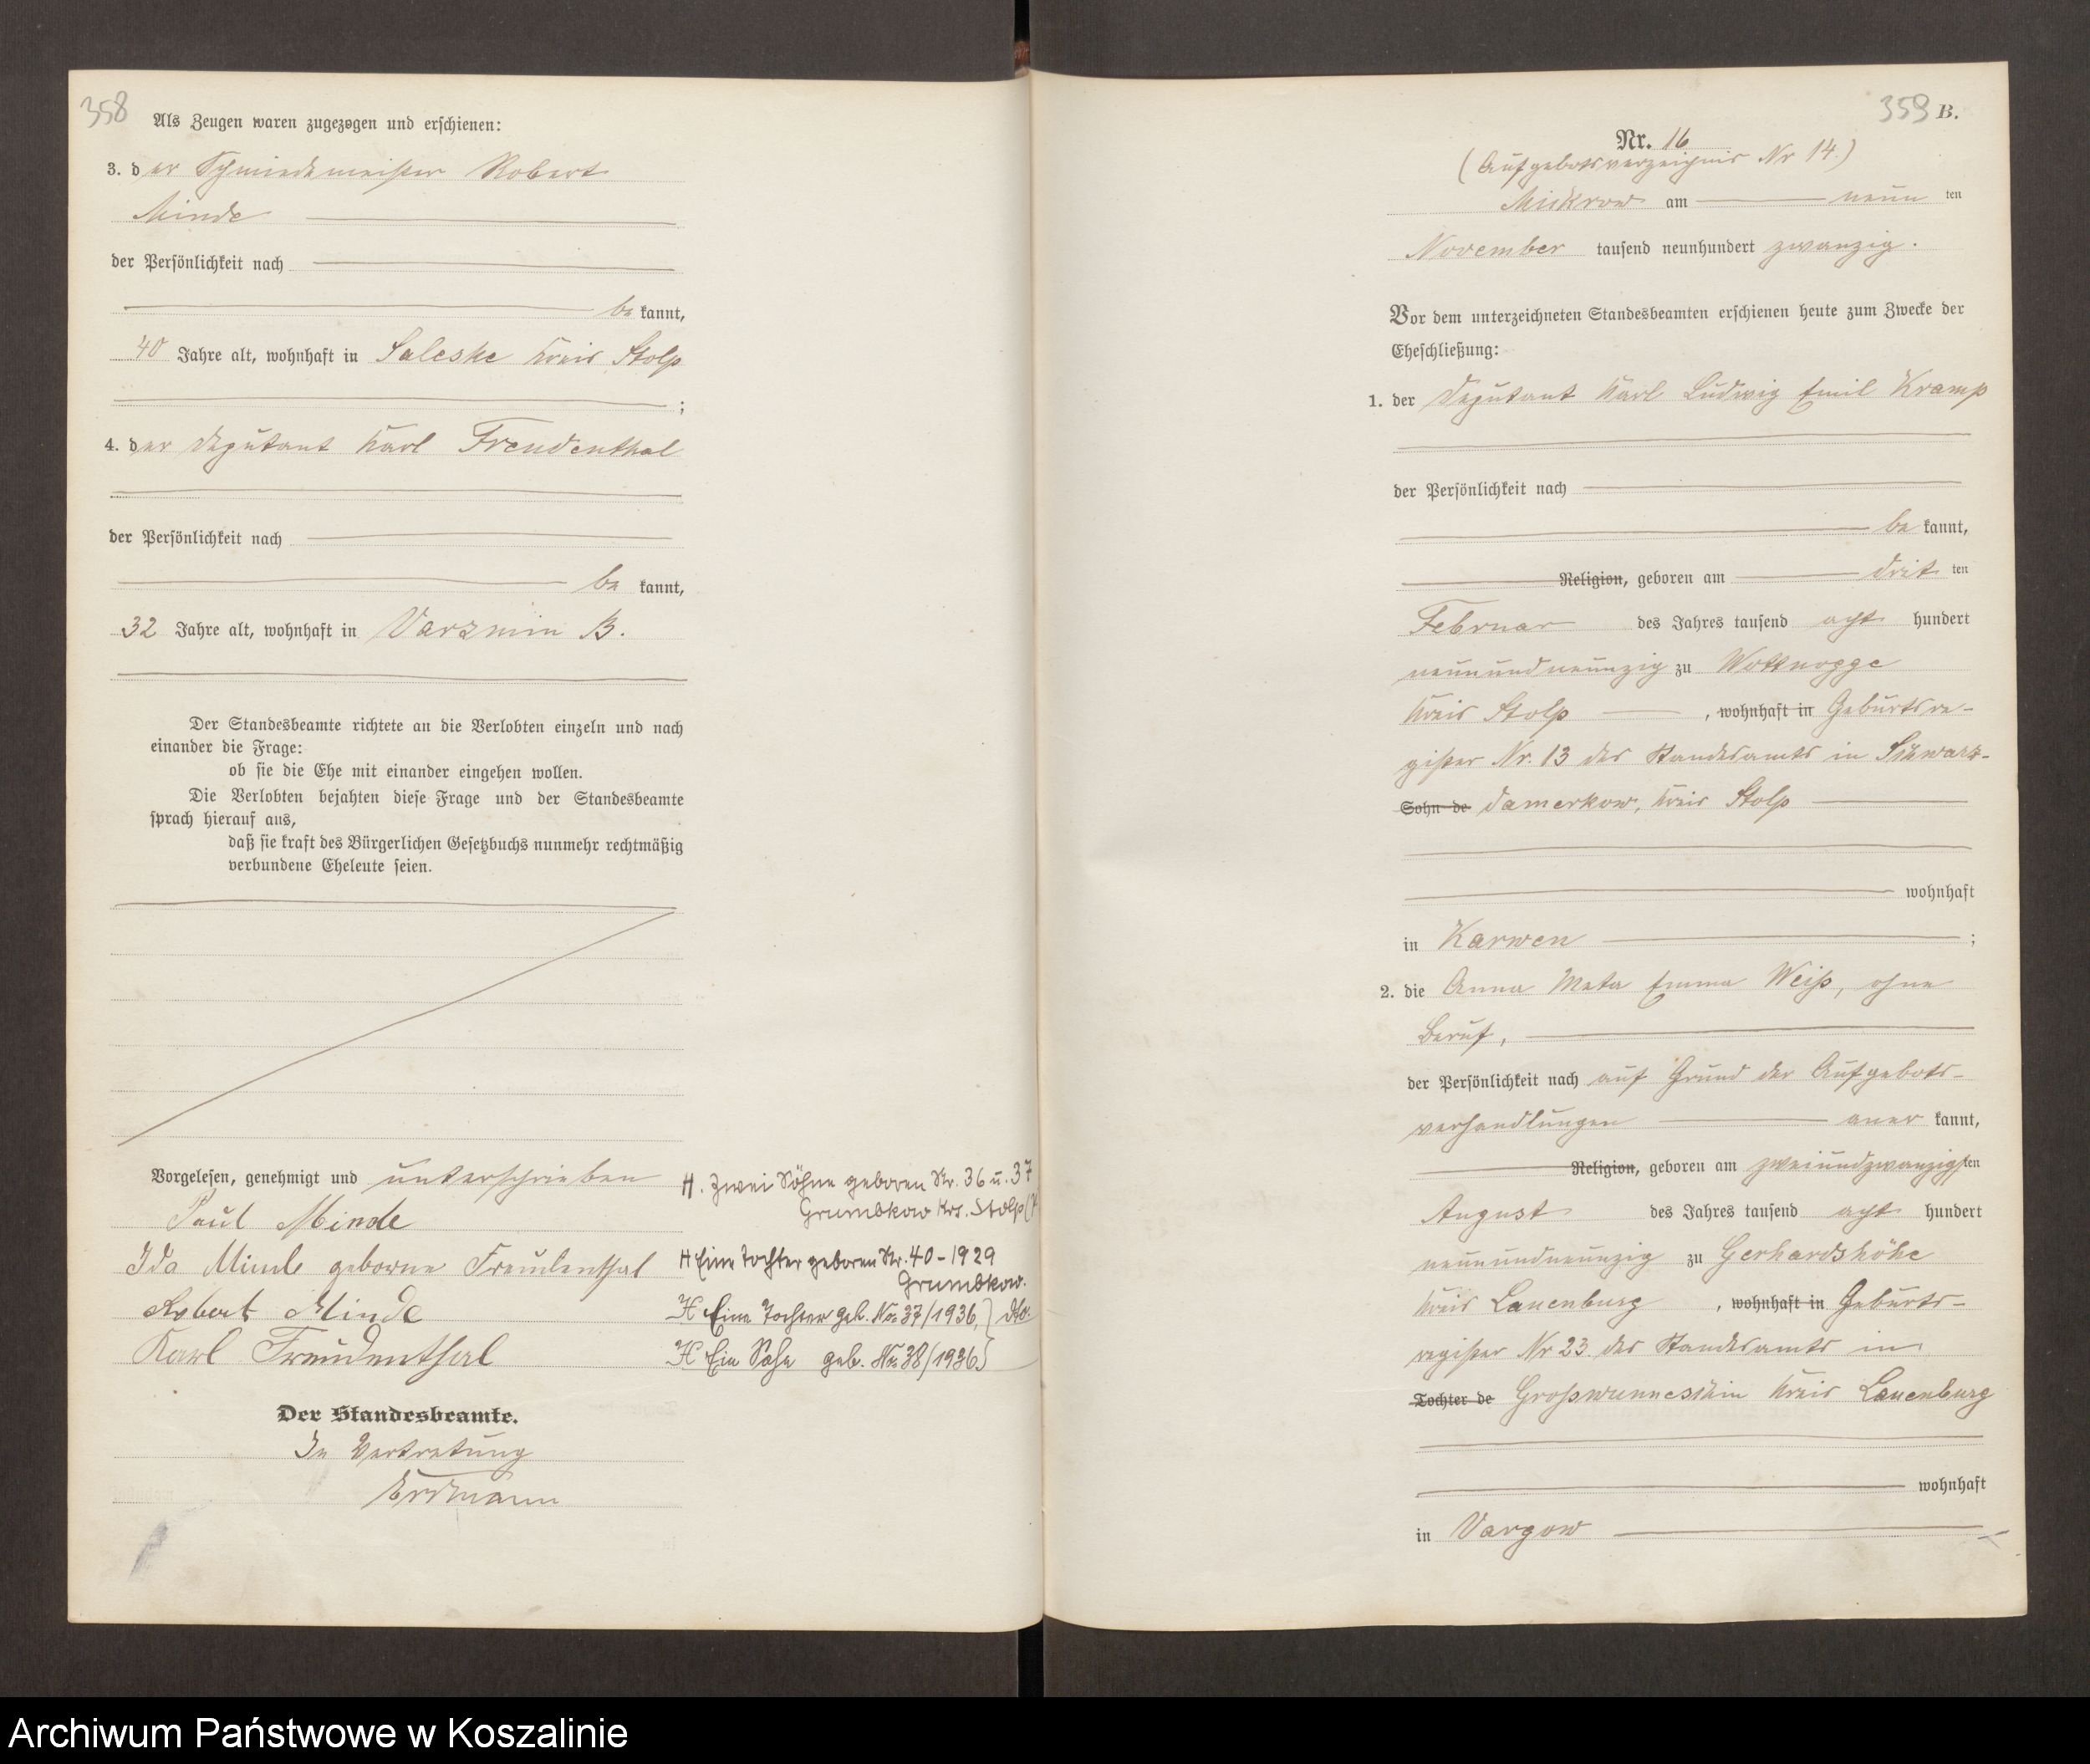 358
Als Zeugen waren zugezogen und erschienen:
3. der Schmiedemeister Robert
Minde
der Persönlichkeit nach
be kannt,
40 Jahre alt, wohnhaft in Saleske Kreis Stolp
;
4. der Deputant Karl Freudenthal
der Persönlichkeit nach
be kannt,
32 Jahre alt, wohnhaft in Varzmin B.
Der Standesbeamte richtete an die Verlobten einzeln und nach
einander die Frage:
ob sie die Ehe mit einander eingehen wollen.
Die Verlobten bejahten diese Frage und der Standesbeamte
sprach hierauf aus,
daß sie kraft des Bürgerlichen Gesetzbuchs nunmehr rechtmäßig
verbundene Eheleute seien.
Vorgelesen, genehmigt und unterschrieben
Paul Minde
Ida Minde geborne Freudenthal
Robert Minde
Karl Freudenthal
Der Standesbeamte.
In Vertretung
Erdmann
H. Zwei Söhne geboren Nr. 36 u. 37
Grumbkow Krs. Stolp
H Eine Tochter geboren Nr. 40-1929
Grumbkow.
H Eine Tochter geb. No 37/1936, } dto.
H Ein Sohn geb. No 38/1936 }
359 B.
Nr. 16
(Aufgebotsverzeichnis Nr 14.)
Mickrow am neun ten
November tausend neunhundert zwanzig.
Vor dem unterzeichneten Standesbeamten erschienen heute zum Zwecke der
Eheschließung:
1. der Deputant Karl Ludwig Emil Kramp
der Persönlichkeit nach
be kannt,
Religion, geboren am drit ten
Februar des Jahres tausend acht hundert
neunundneunzig zu Wottnogge
Kreis Stolp , wohnhaft in Geburtsre-
gister Nr. 13 des Standesamts in Schwarz-
Sohn de damerkow, Kreis Stolp
wohnhaft
in Karwen ;
2. die Anna Meta Emma Weiß, ohne
Beruf,
der Persönlichkeit nach auf Grund der Aufgebots-
verhandlungen aner kannt,
Religion, geboren am zweiundzwanzigsten
August des Jahres tausend acht hundert
neunundneunzig zu Gerhardshöhe
Kreis Lauenburg , wohnhaft in Geburts-
register Nr 23 des Standesamts in
Tochter de Großwunneschin Kreis Lauenburg
wohnhaft
in Vargow
Archiwum Państwowe w Koszalinie